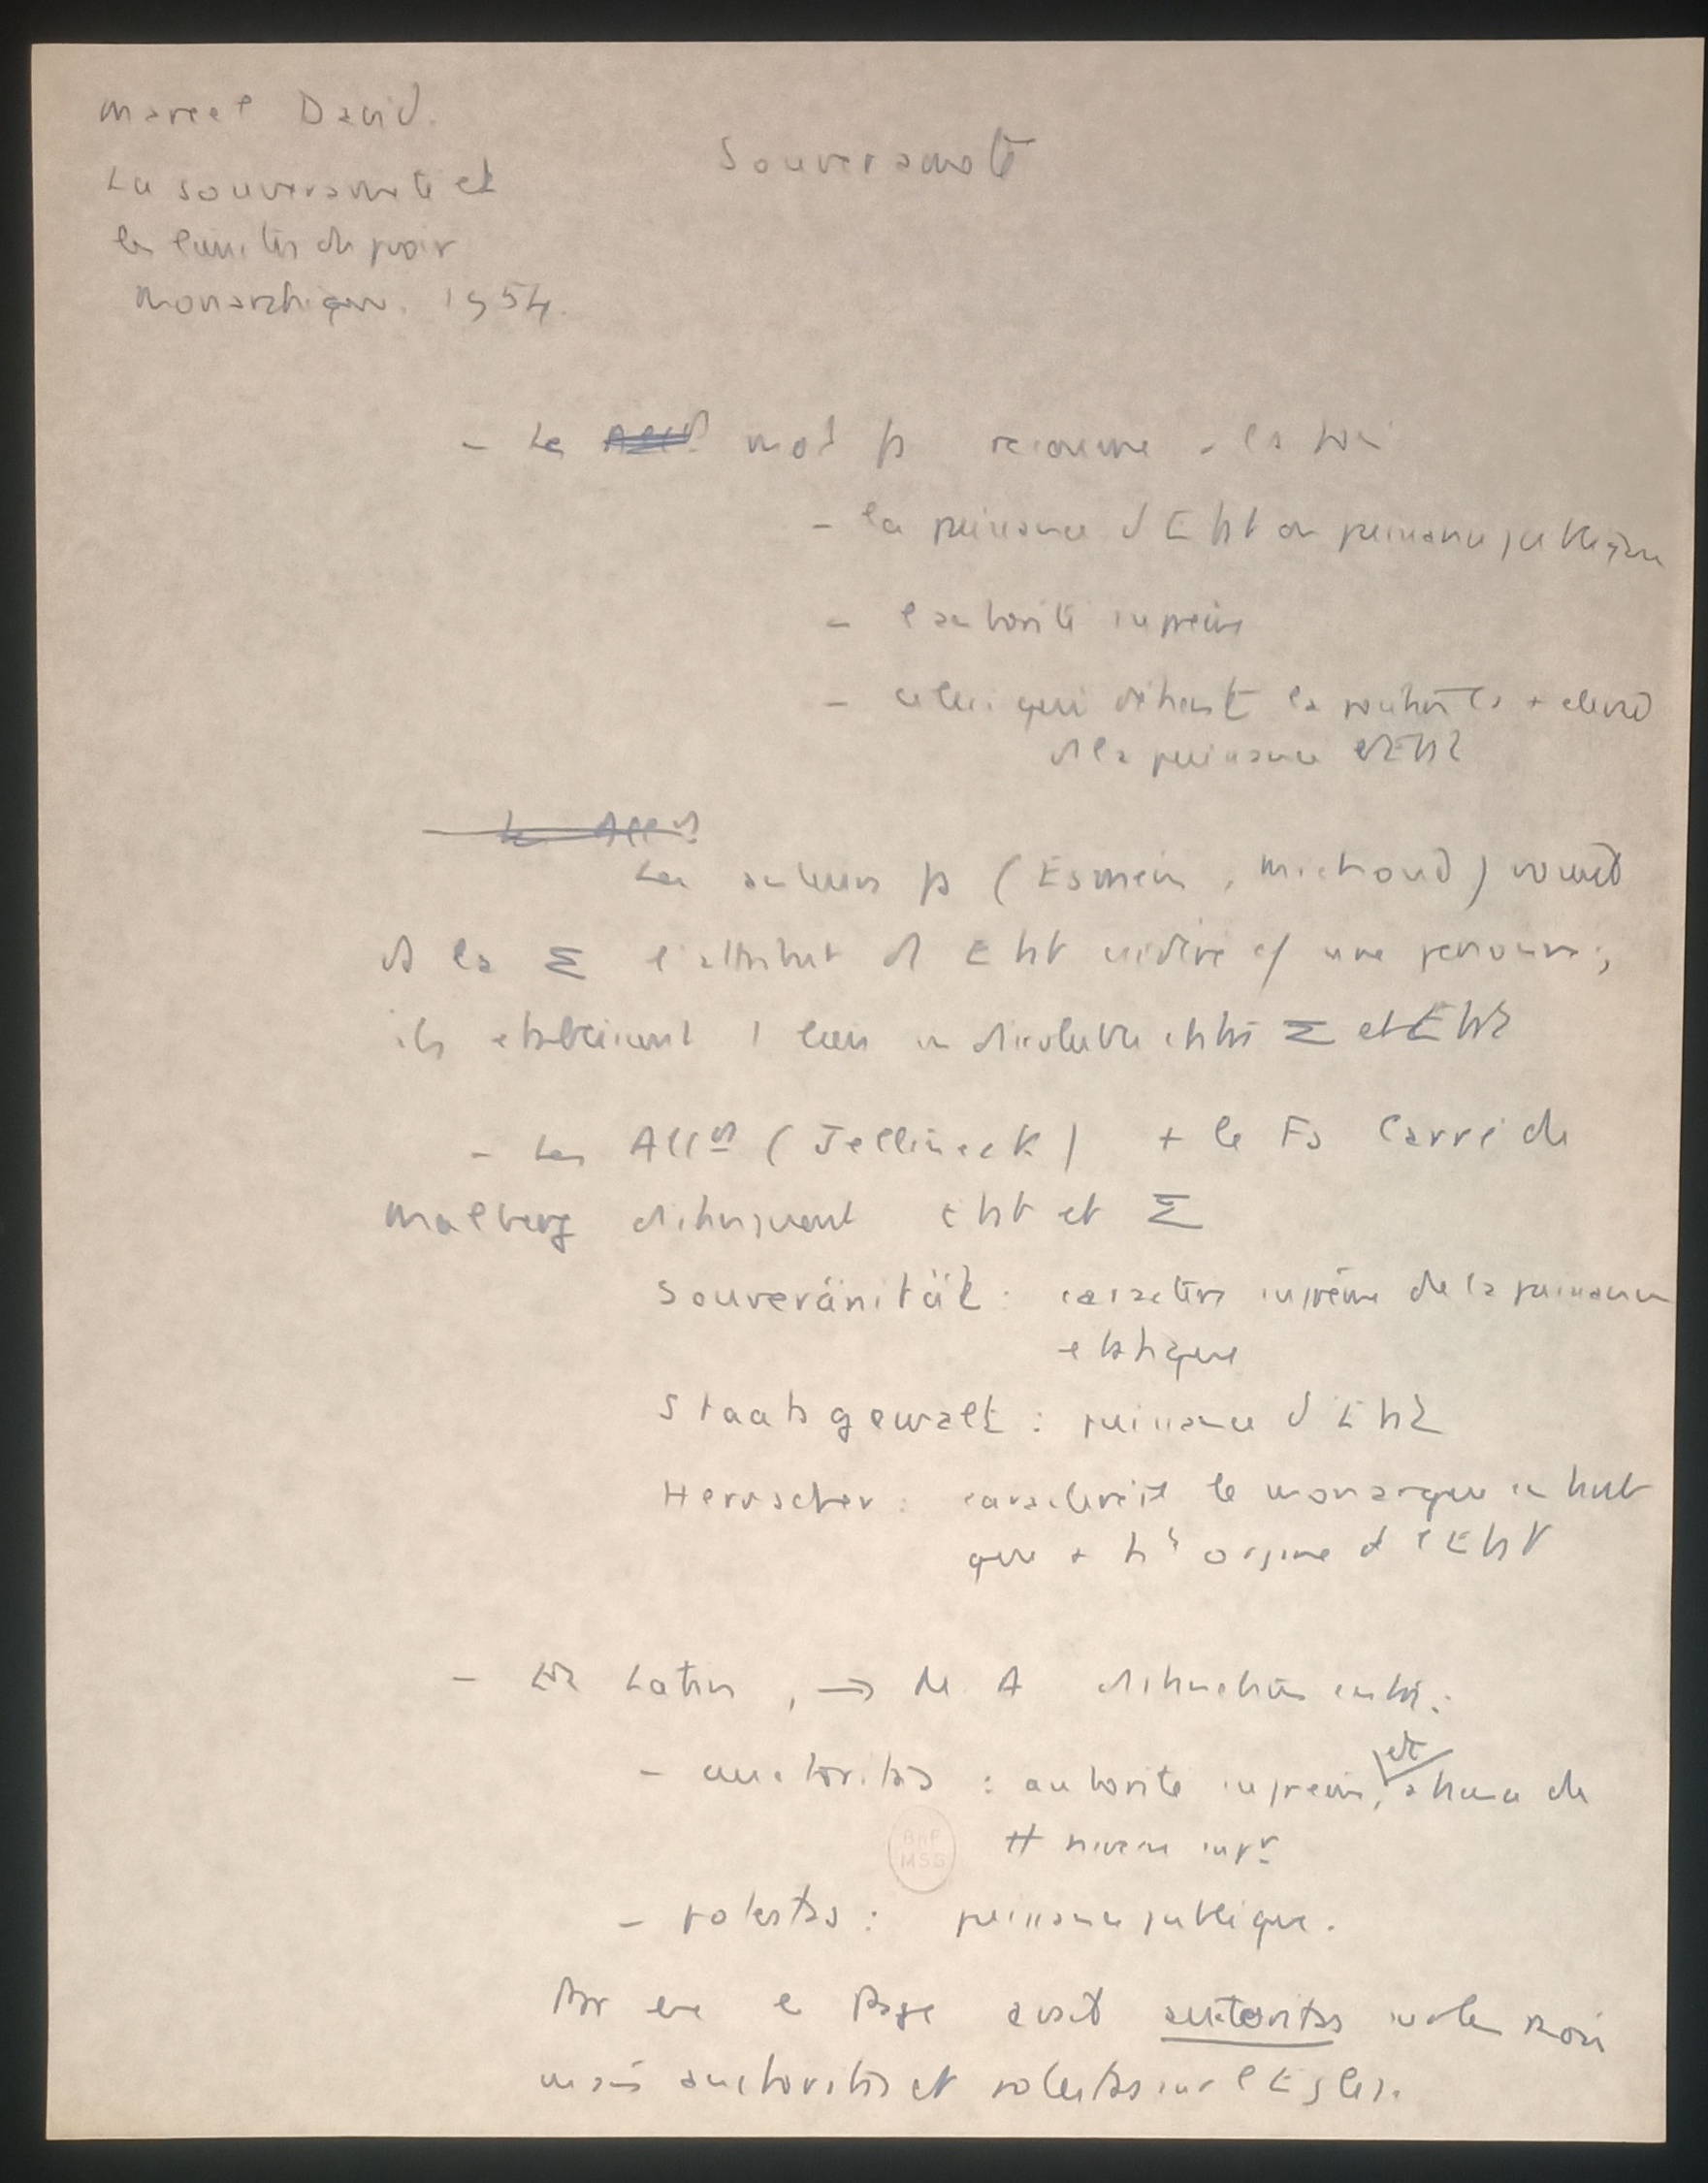 Marcel David.
La souveraineté et
les limites du pouvoir
Monarchique. 1954.
Souveraineté
- Le mot fs recouvre - la fois
- la puissance d'Etat ou puissance publique
- l'autorité suprême
- celui qui détient la + élevé
de la puissance d'Etat
Les auteurs fs (Esmein, Michoud) voient
ds la Σ l'attribut de l'Etat considéré c/ une personne ;
ils établissent 1 lien indissoluble entre Σ et Etat
- Les Allds (Jellineck) + le Fs Carré de
Malberg distinguent Etat et Σ
Souveränität : caractère suprême de la puissance
étatique
Staatsgewalt : puissance d'Etat
Herrscher : caractérise le monarque en tant
que + ht organe de l'Etat
- Latin, → M A distinction entre :
- auctoritas : autorité suprême, et chacun de
# niveau supr
- potestas : puissance publique.
Par ex le Pape avait auctoritas sur les Rois
mais auctoritas et potestas sur l'Eglise.
BnF
MSS